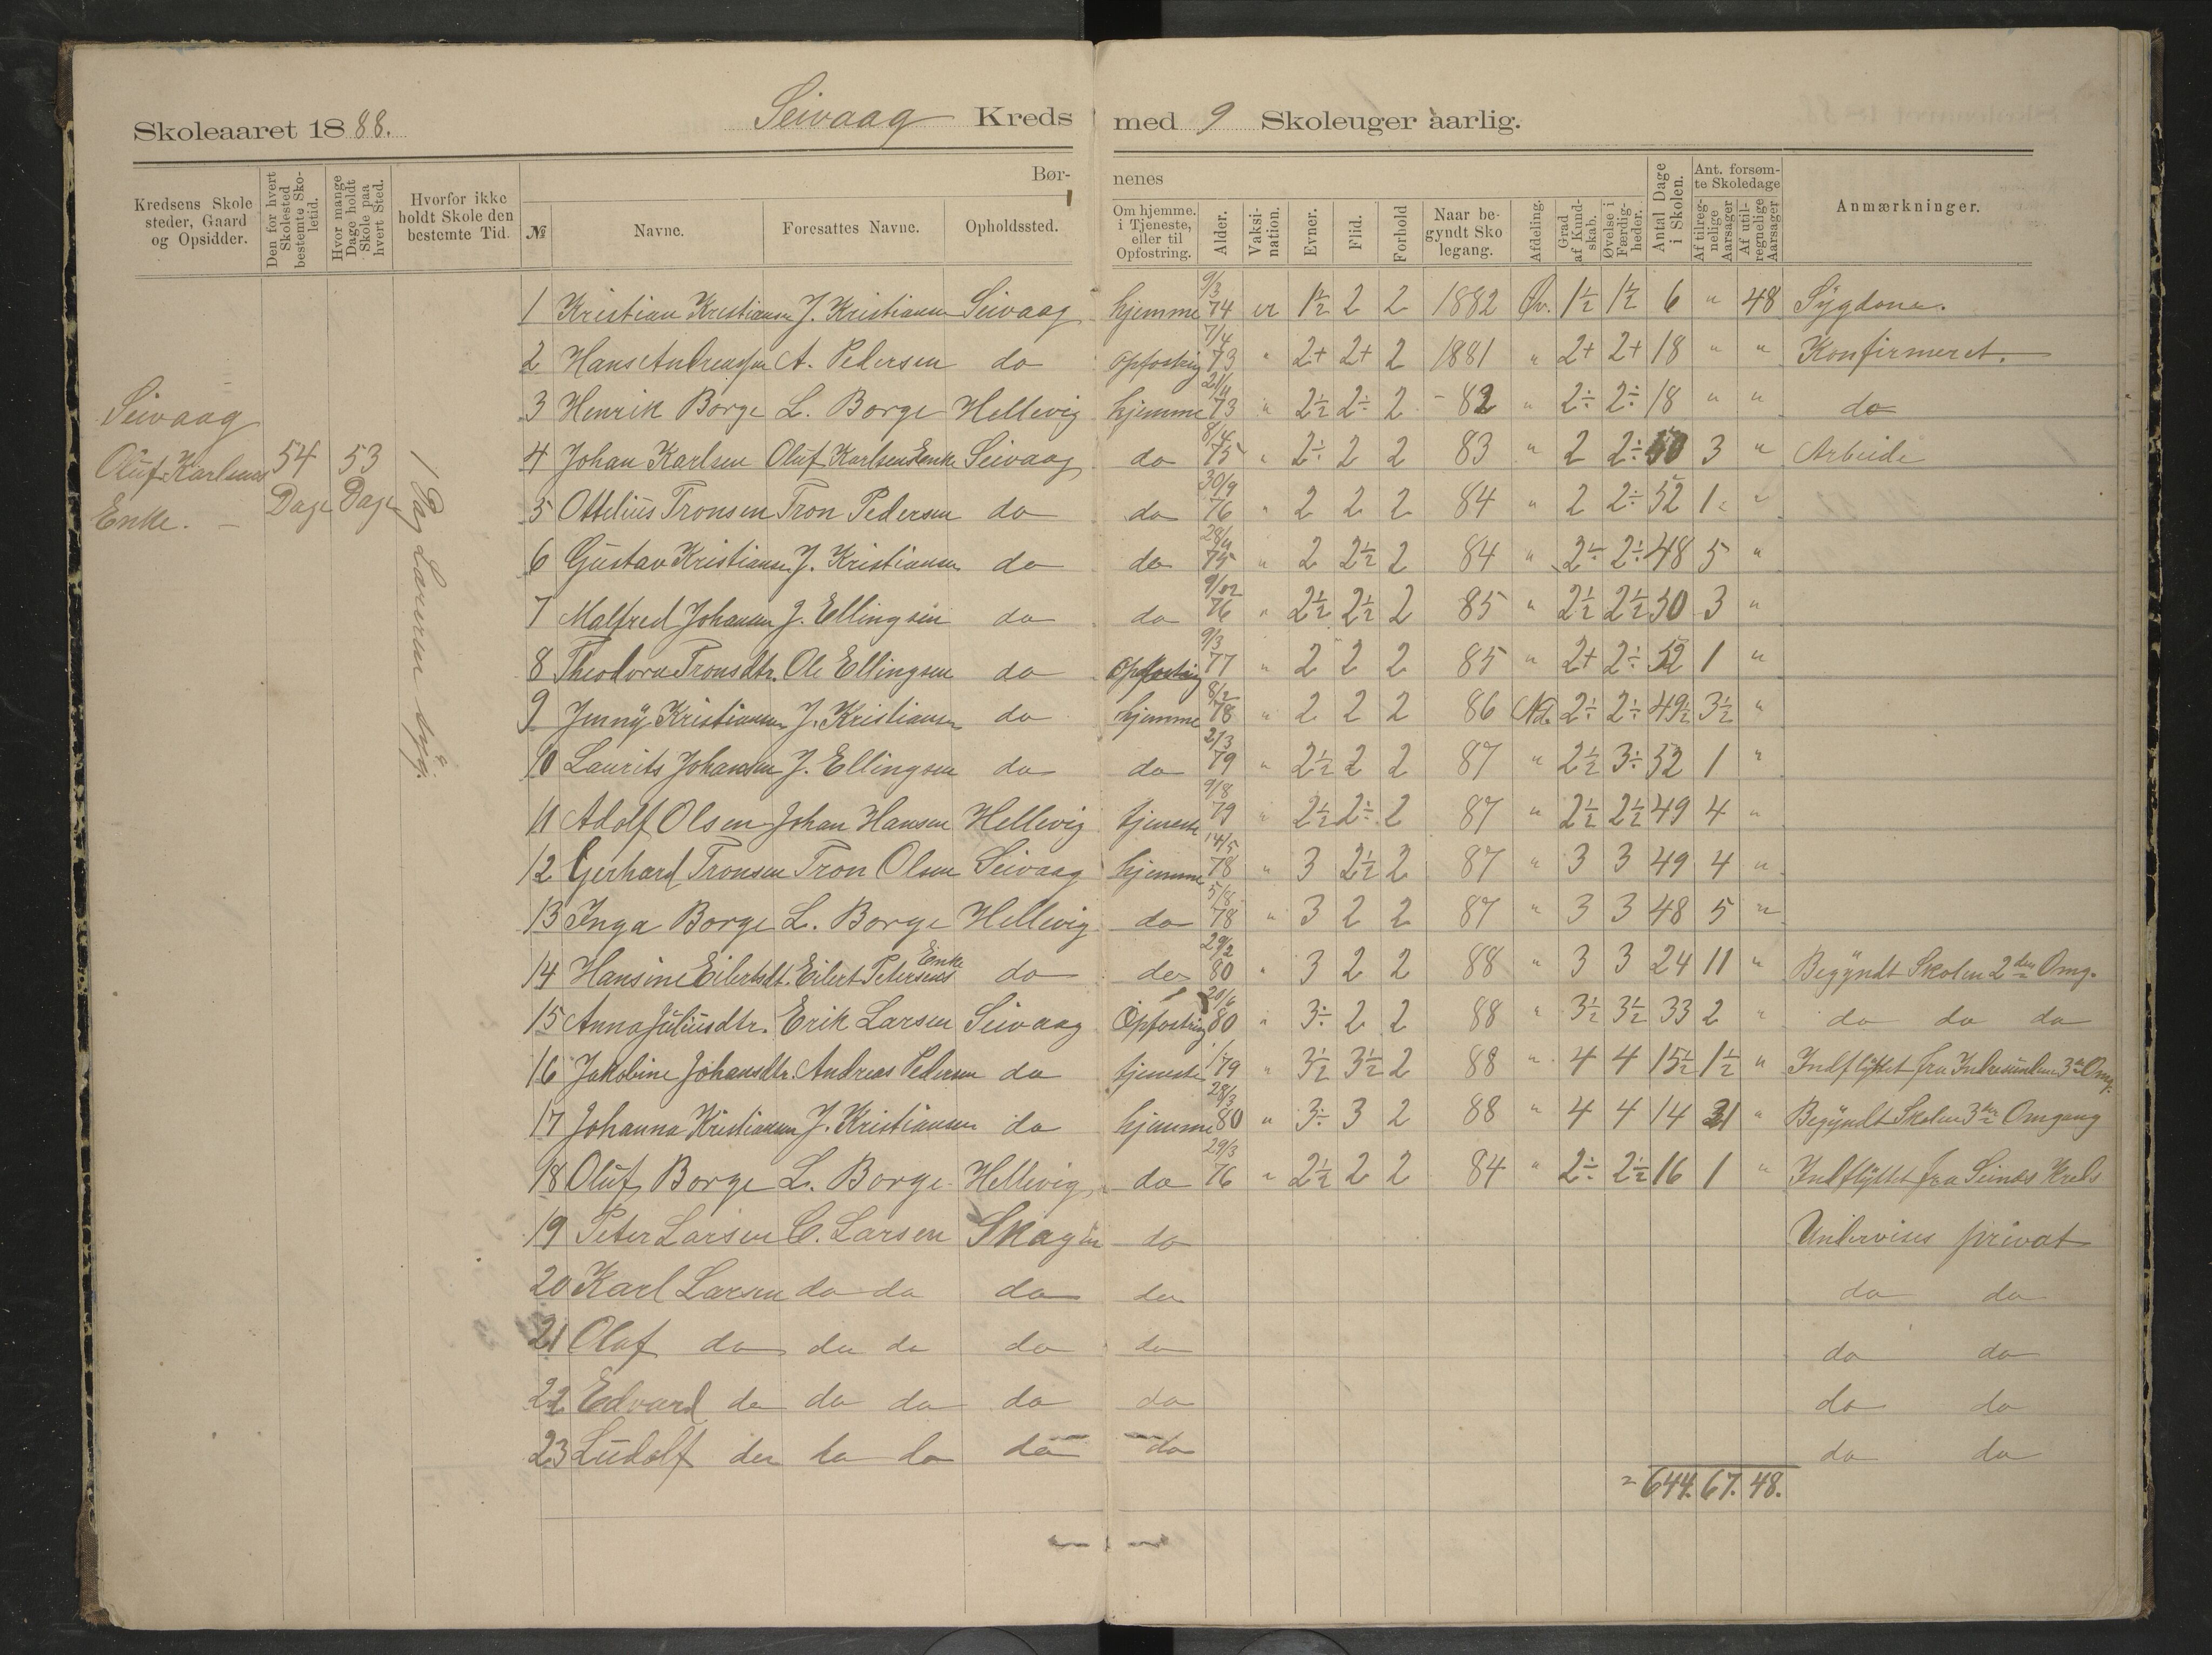 Skoleaaret 1888. Seivaag Kreds med 9 Skoleuger aarlig.
Kredsens Skole steder, Gaard og Opsidder.
Den for hvert Skolested bestemte Skoletid.
Hvor mange Dage holdt Skole paa hvert Sted.
Hvorfor ikke holdt Skole den bestemte Tid.
Bør- nenes
№ Navne. Foresattes Navne. Opholdssted.
Om hjemme. i Tjeneste, eller til Opfostring.
Alder. Vaksi-nation. Evner. Flid. Forhold
Naar be-gyndt Sko legang.
Afdeling. Grad af Kund-skab. Øvelse i Færdig-heder. Antal Dage i Skolen.
Ant. forsøm-te Skoledage
Af tilreg-nelige Aarsager Af util-regnelige Aarsager
Anmærkninger.
Seivaag
Oluf Karlsens
Enke.
54 Dage
53 Dage
1 Dag Læreren syg.
1 Kristian Kristiansen J. Kristiansen Seivaag hjemme 9/3 74 er 1½ 2 2 1882 Øv. 1½ 1½ 6 " 48 Sygdom.
2 Hans Andreassen A. Pedersen do opfostring 7/4 73 " 2+ 2+ 2 1881 " 2+ 2+ 18 " " Konfirmeret.
3 Henrik Borge L. Borge Hellevig hjemme 21/4 73 " 2½ 2÷ 2 - 82 " 2÷ 2÷ 18 " " do
4 Johan Karlsen Oluf Karlsens Enke Seivaag do 8/4 75 " 2÷ 2 2 83 " 2 2÷ 50 3 " Arbeide
5 Ottelius Tronsen Tron Pedersen do do 30/9 76 " 2 2 2 84 " 2 2÷ 52 1 "
6 Gustav Kristiansen J. Kristiansen do do 28/4 75 " 2 2½ 2 84 " 2÷ 2÷ 48 5 "
7 Malfred Johansen J. Ellingsen do do 9/02 76 " 2½ 2½ 2 85 " 2½ 2½ 50 3 "
8 Theodora Tronsdtr. Ole Ellingsen do Opfostring 9/3 77 " 2 2 2 85 " 2+ 2÷ 52 1 "
9 Jenny Kristiansen J. Kristiansen do hjemme 8/2 78 " 2 2 2 86 Nd. 2÷ 2÷ 49½ 3½ "
10 Laurits Johansen J. Ellingsen do do 2/3 79 " 2½ 2 2 87 " 2½ 3÷ 52 1 "
11 Adolf Olsen Johan Hansen Hellevig tjeneste 9/8 79 " 2½ 2÷ 2 87 " 2½ 2½ 49 4 "
12 Gerhard Tronsen Tron Olsen Seivaag hjemme 14/5 78 " 3 2½ 2 87 " 3 3 49 4 "
13 Inga Borge L. Borge Hellevig do 5/8 78 " 3 2 2 87 " 3 3 48 5 "
14 Hansine Eilertsdt. Eilert Petersens Enke do do 29/2 80 " 3 2 2 88 " 3 3 24 11 " Begyndt Skolen 2den Omg.
15 Anna Juliusdtr. Erik Larsen Seivaag Opfostring 20/6 80 " 3÷ 2 2 88 " 3½ 3½ 33 2 " do do do
16 Jakobine Johansdtr. Andreas Pedersen do tjeneste 79 " 3½ 3½ 2 88 " 4 4 15½ 1½ " Indflyttet fra 3die Omg.
17 Johanna Kristiansen J. Kristiansen do hjemme 28/3 80 " 3÷ 3 2 88 " 4 4 14 21 " Begyndt Skolen 3die Omgang
18 Oluf Borge L. Borge Hellevig do 29/3 76 " 2½ 2 2 84 " 2÷ 2½ 16 1 " Indflyttet fra Seines Kreds
19 Peter Larsen C. Larsen Skagen do Undervises privat
20 Karl Larsen do do do do do do
21 Olaf do do do do do do do
22 Edvard do do do do do do do
23 Ludolf do do do do do do do
= 644. 67. 48.